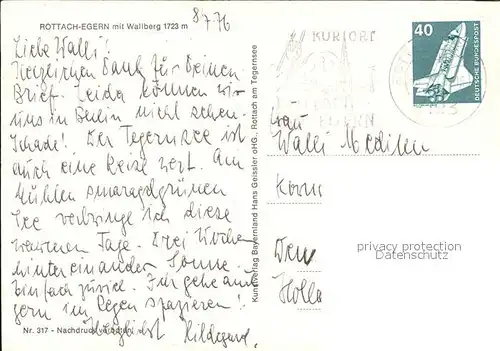 8/7 76
ROTTACH-EGERN mit Wallberg 1723 m
Liebe Walli!
Herzlichen Dank für Deinen
Brief. Leider können wir
uns in Berlin nicht sehen.
Schade! Der Tegernsee ist
auch eine Reise wert. Am
kühlen smaragdgrünen
See verbringe ich diese
warmen Tage. Drei Wochen
hintereinander Sonne.
Einfach zuviel. Ich gehe auch
gern im Regen spazieren!
Herzlichst Hildegard.
Nr. 317 - Nachdruck verboten
Kunstverlag Bayernland Hans Geissler oHG., Rottach am Tegernsee
KURORT
EGERN
40
DEUTSCHE BUNDESPOST
Frau
Walli
Den
Holla
privacy protection
Datenschutz